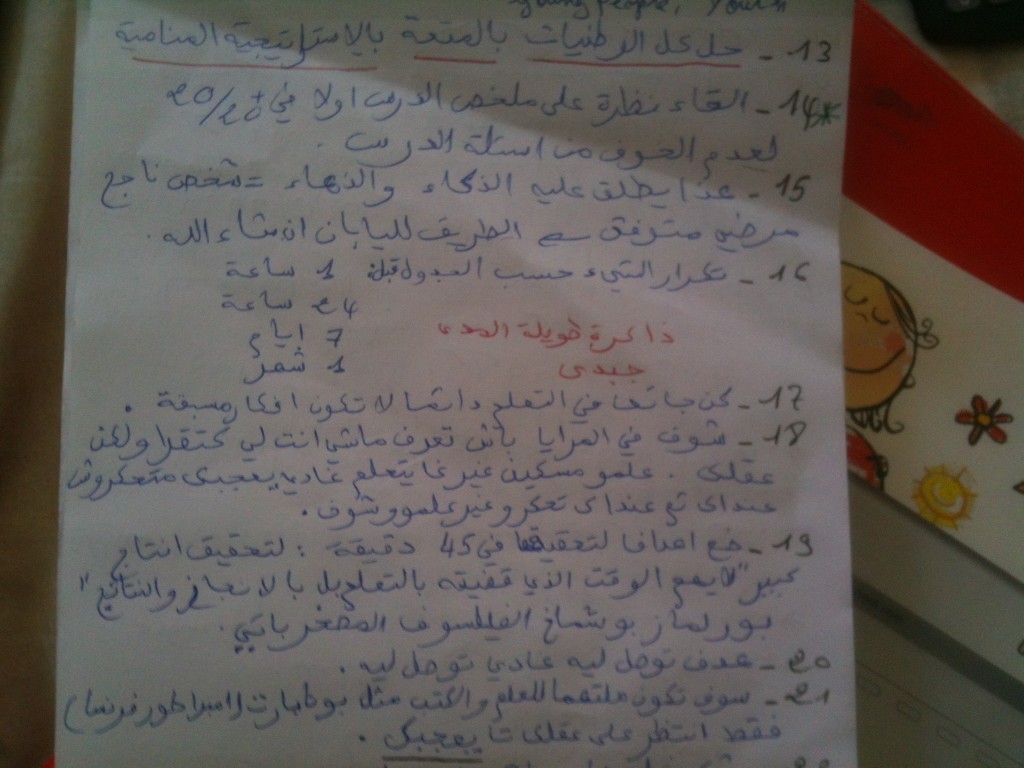 young People, Youth
13 - حل كل الوطنيات بالمتعة بالاستراتيجية المنامية
14* - القاء نظرة على ملخص الدرس اولا في 20/20
لعدم الخوف من اسئلة الدرس .
15 - هذا يطلق عليه الذكاء والدهاء = شخص ناجح
مرضي متوفق سے الطريق لليابان ان شاء الله .
16 - تكرار الشيء حسب الجدول قبل: 1 ساعة
24 ساعة
ذاكرة طويلة المدى 7 ايام
جيدى 1 شهر
17 - كن جائعا في التعلم دائما لا تكون افكار مسبقة .
18 - شوف في المرايا باش تعرف ماشي انت لي كتقرا ولكن
عقلك . علمو مسكين غير غا يتعلم غاديا يعجبك متعكروش
عنداك تم عنداك تعكرو غير علمو وشوف .
19 - ضع اهدافا لتحقيقها في 45 دقيقة : لتحقيق انتاج
كبير "لا يهم الوقت الذي قضيته بالتعلم بل بالانجاز والنتائج"
بورلماز بوشماخ الفيلسوف المصغرباتي .
20 - هدف توصل ليه عادي توصل ليه .
21 - سوف تكون ملتهما للعلم والكتب مثل بونابارت (امبراطور فرنسا)
فقط انتظر على عقلك تا يعجبك .
22